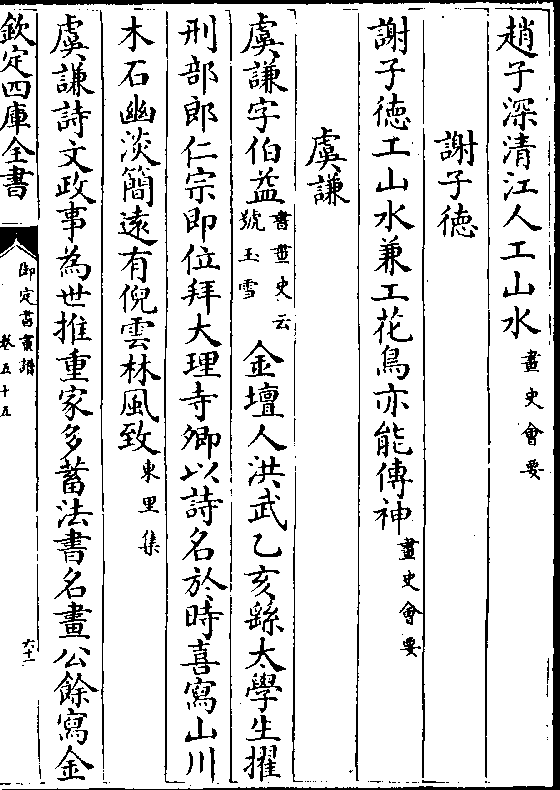 趙子深清江人工山水畫史會要
謝子徳
謝子徳工山水兼工花鳥亦能傳神畫史會要
虞謙
虞謙字伯益書畫史云號玉雪金壇人洪武乙亥繇太學生擢
刑部郎仁宗即位拜大理寺卿以詩名於時喜寫山川
木石幽淡簡逺有倪雲林風致東里集
虞謙詩文政事為世推重家多蓄法書名畫公餘寫金
欽定四庫全書
御定書畫譜
卷五十五
六十一